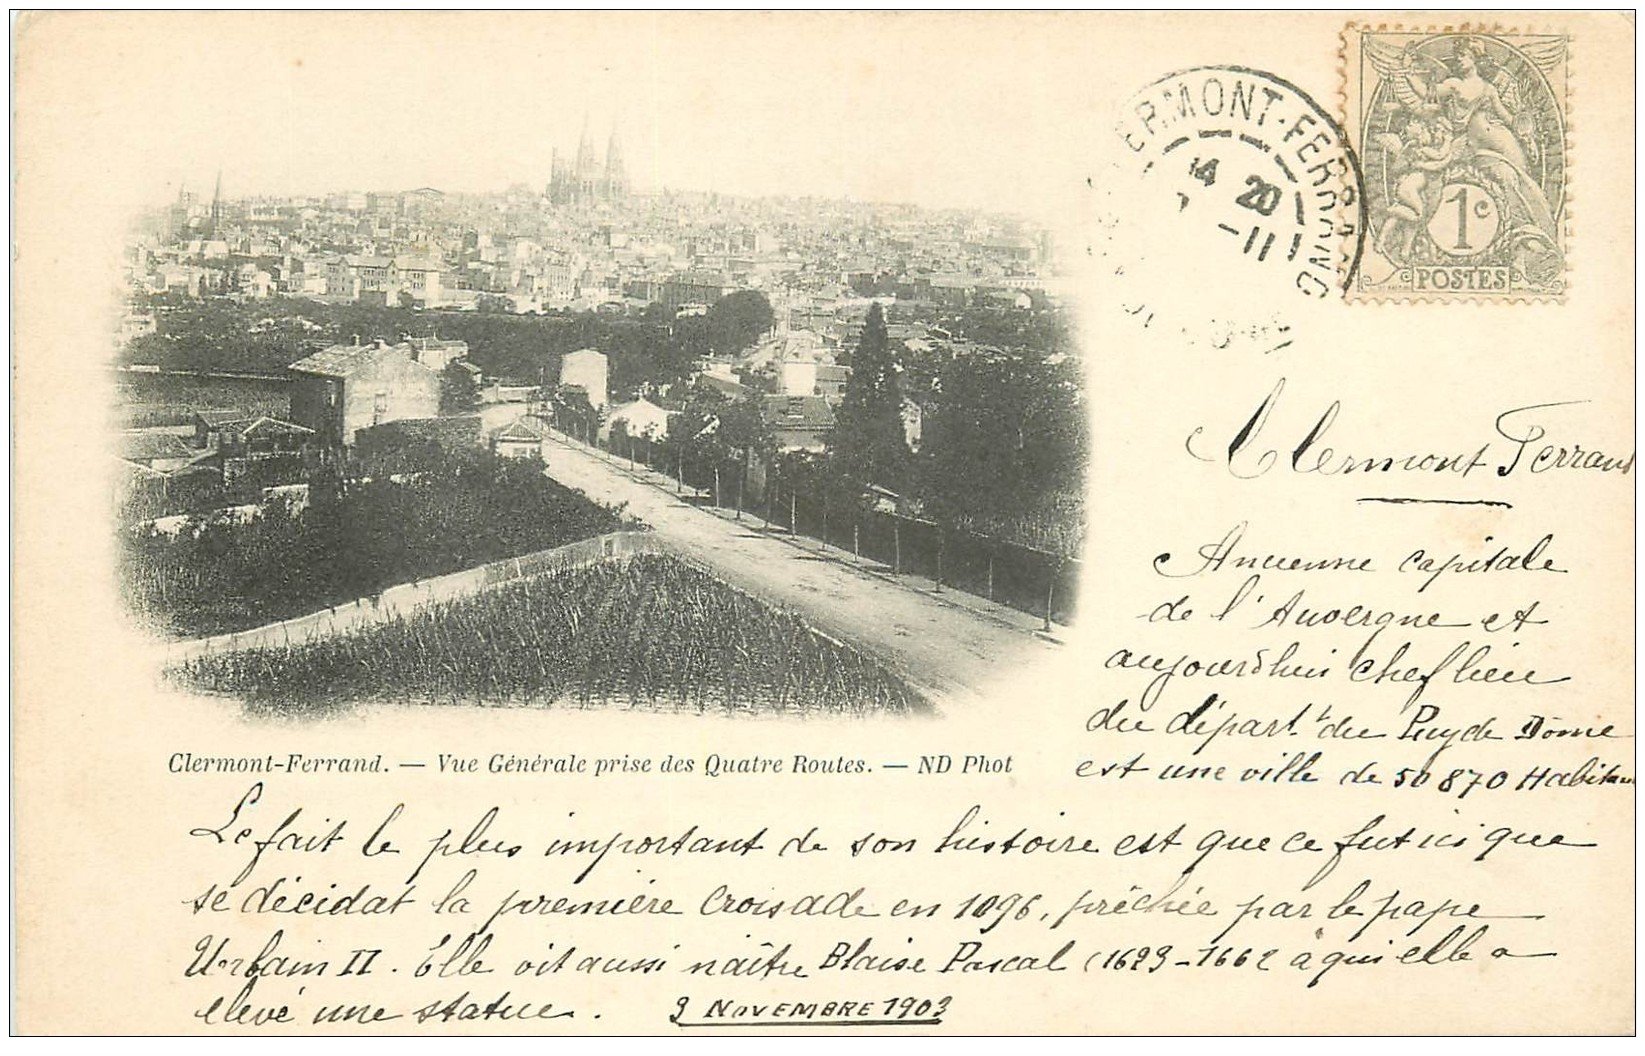 CLERMONT-FERRAND
14 20
-11
1c
POSTES
Clermont Ferrand
Ancienne capitale
de l'Auvergne et
aujourd'hui chef lieu
du départt du Puy de Dôme
est une ville de 50 870 Habitan
Clermont-Ferrand. — Vue Générale prise des Quatre Routes. — ND Phot
Le fait le plus important de son histoire est que ce fut ici que
se décidat la première Croisade en 1096, prêchée par le pape
Urbain II. Elle vit aussi naître Blaise Pascal (1623-1662 à qui elle a
élevé une statue. 3 NOVEMBRE 1903